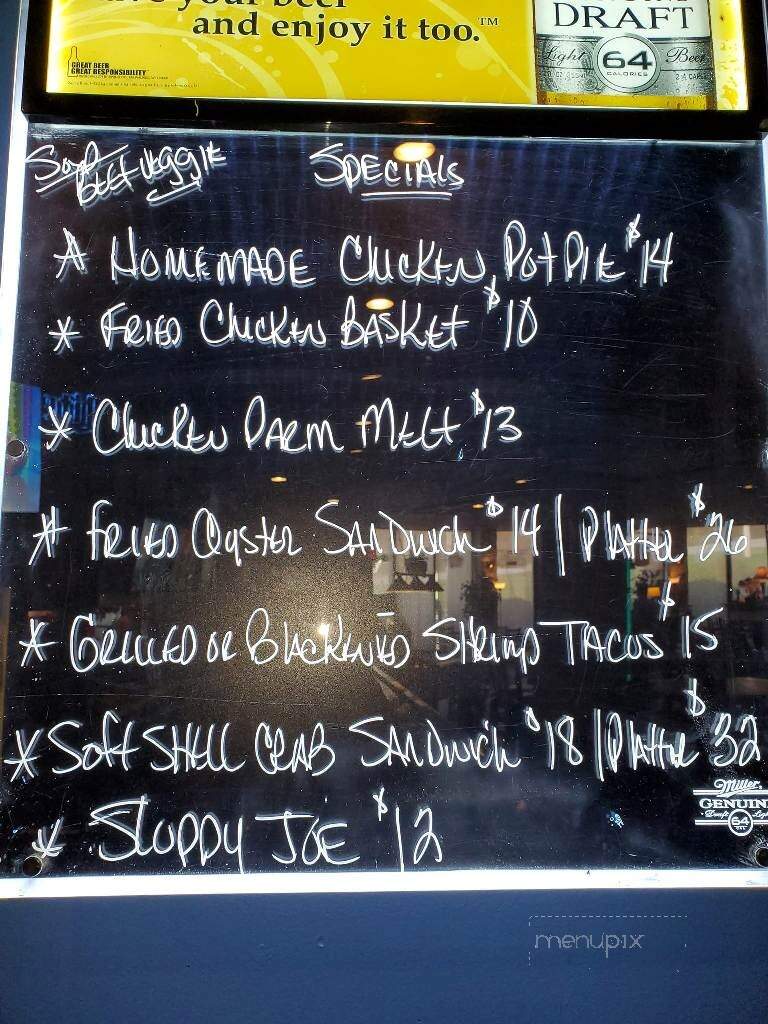 your beer
and enjoy it too.™
DRAFT
Light 64 Beer
CALORIES
GREAT BEER
GREAT RESPONSIBILITY
Soup
Beef Veggie
Specials
* Homemade Chicken Pot Pie $14
* Fried Chicken Basket $10
* Chicken Parm Melt $13
* Fried Oyster Sandwich $14 | Platter $26
* Grilled or Blackened Shrimp Tacos $15
* Soft Shell Crab Sandwich $18 | Platter $32
* Sloppy Joe $12
Miller
GENUIN
Draft 64 Ligh
menupix